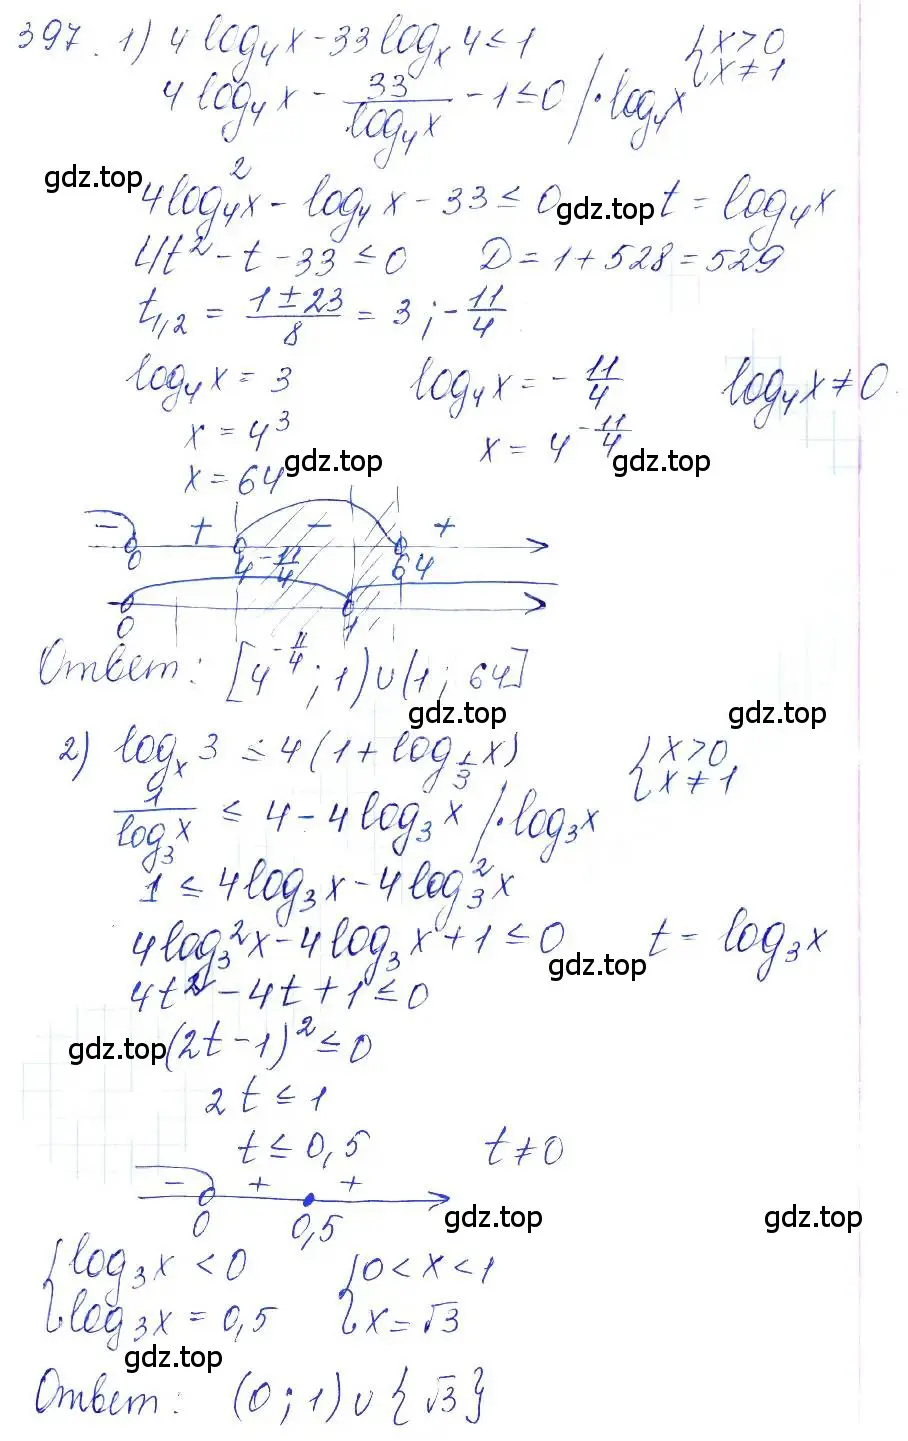 397. 1) 4 log₄x - 33 logₓ4 ≤ 1 { x > 0
{ x ≠ 1
4 log₄x - 33/log₄x - 1 ≤ 0 / · log₄x
gdz.top
4 log₄²x - log₄x - 33 ≤ 0 gdz.top t = log₄x
4t² - t - 33 ≤ 0 D = 1 + 528 = 529
t₁,₂ = (1 ± 23)/8 = 3 ; -11/4
log₄x = 3 log₄x = -11/4 log₄x ≠ 0
x = 4³ x = 4^(-11/4)
x = 64 gdz.top gdz.top
- + - +
0 4^(-11/4) 64
0 1
Ответ: [4^(-11/4) ; 1) ∪ (1 ; 64]
gdz.top gdz.top
2) logₓ3 ≤ 4(1 + log_(1/3)x) { x > 0
{ x ≠ 1
1/log₃x ≤ 4 - 4 log₃x / · log₃x
1 ≤ 4 log₃x - 4 log₃²x
4 log₃²x - 4 log₃x + 1 ≤ 0 t = log₃x
gdz.top
4t² - 4t + 1 ≤ 0
gdz.top (2t - 1)² ≤ 0
2t ≤ 1
t ≤ 0,5 t ≠ 0
- + +
0 0,5 gdz.top gdz.top
{ log₃x < 0 { 0 < x < 1
{ log₃x = 0,5 { x = √3
gdz.top
Ответ: (0 ; 1) ∪ {√3}